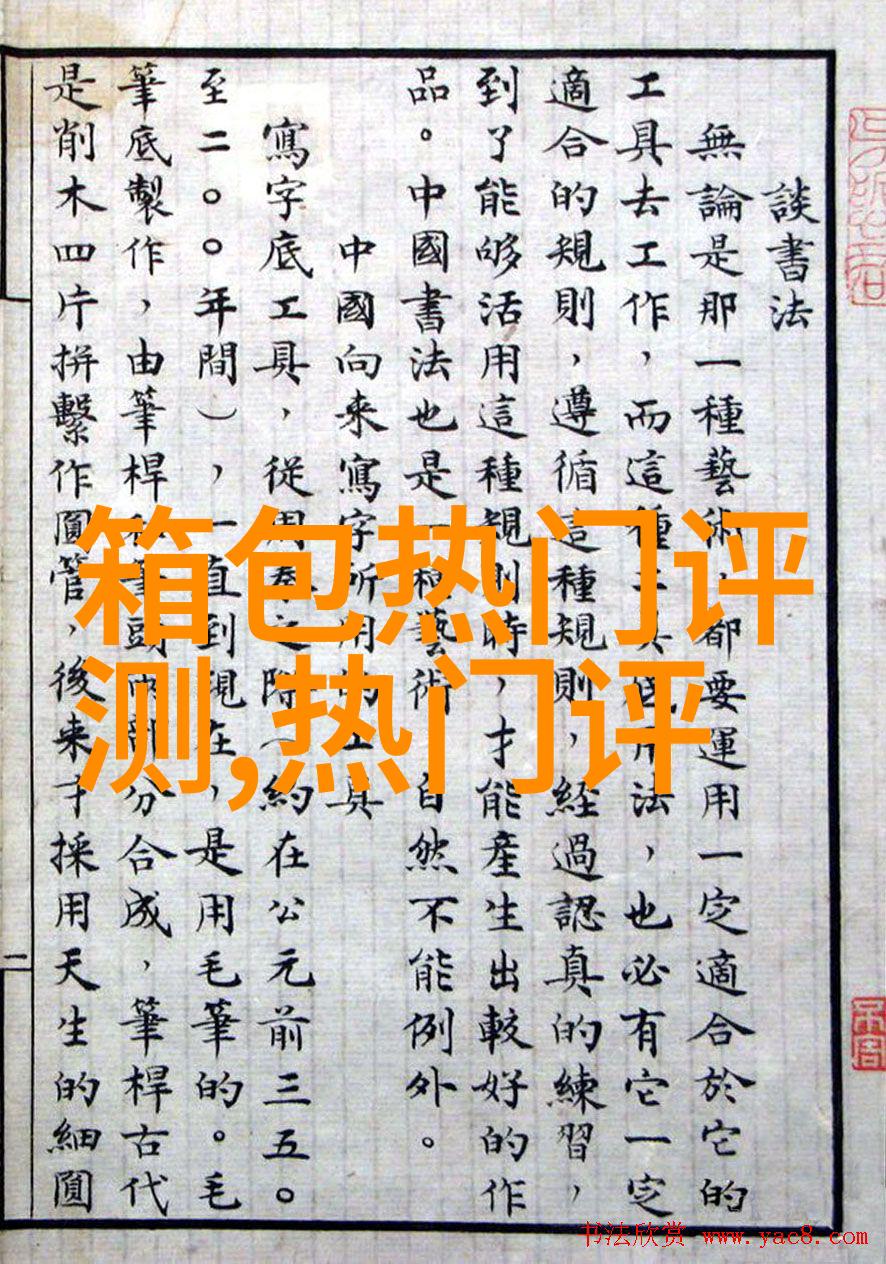 談書法
無論是那一種藝術，都要運用一定適合於它的
工具去工作，而這種工具底用法，也必有它一定
適合的規則，遵循這種規則，經過認真的練習，
到了能够活用這種規則時，才能產生出較好的作
品。中國書法也是一種藝術，自然不能例外。
中國向来寫字所用的工具
寫字底工具，從周秦之際（約在公元前三五〇
至二〇〇年間），一直到現在，是用毛筆的。毛
筆底製作，由筆桿和筆頭兩部分合成，筆桿古代
是削木四片拼繫作圓管，後来才採用天生的細圓
二
箱包热门评
测,热门评
书法欣赏 www.yac8.com